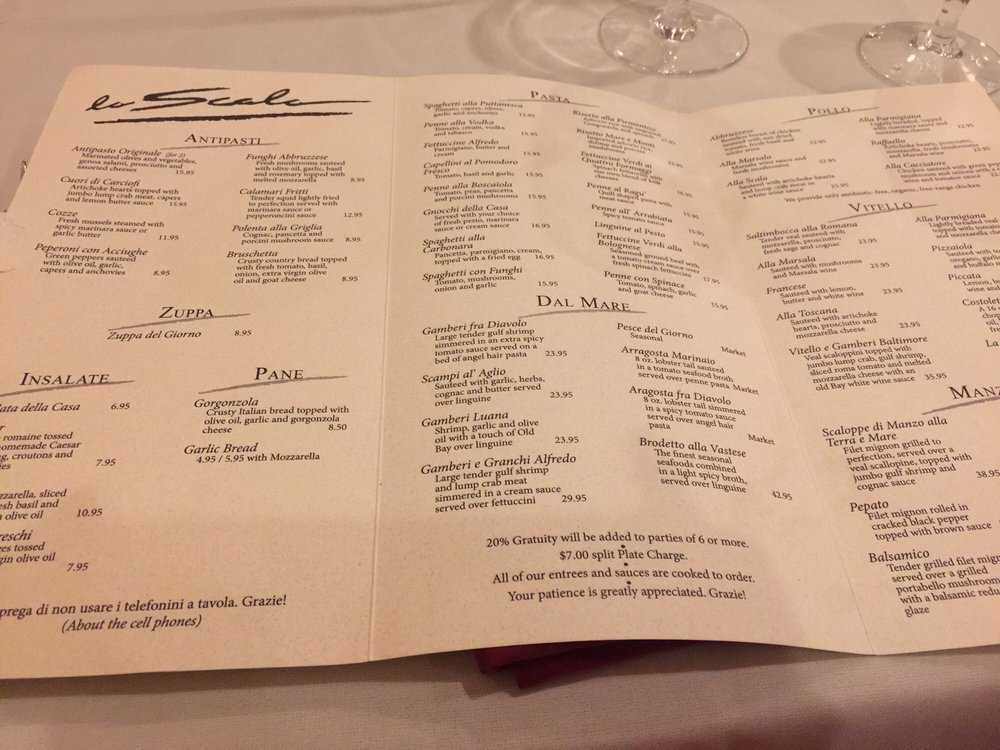 la Scala
ANTIPASTI
Antipasto Originale (for 2)
Marinated olives and vegetables,
genoa salami, prosciutto and
assorted cheeses 15.95
Cuori di Carciofi
Artichoke hearts topped with
jumbo lump crab meat, capers
and lemon butter sauce 15.95
Cozze
Fresh mussels steamed with
spicy marinara sauce or
garlic butter 11.95
Peperoni con Acciughe
Green peppers sauteed
with olive oil, garlic,
capers and anchovies 8.95
Funghi Abbruzzese
Fresh mushrooms sauteed
with olive oil, garlic, basil
and rosemary topped with
melted mozzarella 8.95
Calamari Fritti
Tender squid lightly fried
to perfection served with
marinara sauce or
pepperoncini sauce 12.95
Polenta alla Griglia
Cognac, pancetta and
porcini mushroom sauce 8.95
Bruschetta
Crusty country bread topped
with fresh tomato, basil,
onion, extra virgin olive
oil and goat cheese 8.95
ZUPPA
Zuppa del Giorno 8.95
INSALATE
ata della Casa 6.95
romaine tossed
homemade Caesar
croutons and
7.95
mozzarella, sliced
fresh basil and
olive oil
10.95
tossed
olive oil
7.95
PANE
Gorgonzola
Crusty Italian bread topped with
olive oil, garlic and gorgonzola
cheese 8.50
Garlic Bread
4.95 / 5.95 with Mozzarella
prega di non usare i telefonini a tavola. Grazie!
(About the cell phones)
PASTA
Spaghetti alla Puttanesca
Tomato, capers, olives,
garlic and anchovies 15.95
Penne alla Vodka
Tomato, cream, vodka
and tabasco 15.95
Fettuccine Alfredo
Parmigiano, butter and
cream 15.95
Capellini al Pomodoro
Fresco
Tomato, basil and garlic 15.95
Penne alla Boscaiola
Tomato, peas, pancetta
and porcini mushrooms 15.95
Gnocchi della Casa
Served with your choice
of fresh pesto, marinara
sauce or cream sauce 16.95
Spaghetti alla
Carbonara
Pancetta, parmigiano, cream,
topped with a fried egg 16.95
Spaghetti con Funghi
Tomato, mushrooms,
onion and garlic 15.95
Risotto alla Piemontese
Risotto Mare e Monti
Fettuccine Verdi ai
Quattro Formaggi
Spinach fettuccine with
our own blend of four
cheeses
Penne al Ragu'
Quill shaped pasta with
meat sauce
Penne all' Arrabiata
Spicy tomato sauce 15.95
Linguine al Pesto 15.95
Fettuccine Verdi alla
Bolognese
Seasoned ground beef with
a tomato cream sauce over
fresh spinach fettuccine 17.95
Penne con Spinace
Tomato, spinach, garlic
and goat cheese 15.95
DAL MARE
Gamberi fra Diavolo
Large tender gulf shrimp
simmered in an extra spicy
tomato sauce served on a
bed of angel hair pasta 23.95
Scampi al' Aglio
Sauteed with garlic, herbs,
cognac and butter served
over linguine 23.95
Gamberi Luana
Shrimp, garlic and olive
oil with a touch of Old
Bay over linguine 23.95
Gamberi e Granchi Alfredo
Large tender gulf shrimp
and lump crab meat
simmered in a cream sauce
served over fettuccini 29.95
Pesce del Giorno
Seasonal Market
Arragosta Marinaio
8 oz. lobster tail sauteed
in a tomato seafood broth
served over penne pasta Market
Aragosta fra Diavolo
8 oz. lobster tail simmered
in a spicy tomato sauce
served over angel hair
pasta Market
Brodetto alla Vastese
The finest seasonal
seafoods combined
in a light spicy broth,
served over linguine 42.95
20% Gratuity will be added to parties of 6 or more.
•
$7.00 split Plate Charge.
•
All of our entrees and sauces are cooked to order.
•
Your patience is greatly appreciated. Grazie!
POLLO
Abbruzzese
breast of chicken
sauteed with sun dried
tomato, fresh basil and
white wine 22.95
Alla Marsala
Marsala wine sauce and
fresh mushrooms 22.95
Alla Scala
Sauteed with artichoke hearts
and lump crab meat in
a white wine sauce 25.95
Alla Parmigiana
Lightly breaded, topped
with marinara sauce and
mozzarella cheese 22.95
Raffaello
Artichoke hearts, prosciutto,
and Marsala sauce 23.95
Alla Cacciatore
Chicken sauteed with green
mushroom and onions with a
wine
We provide only antibiotic-free, organic, free-range chicken
VITELLO
Saltimbocca alla Romana
Tender veal sauteed with
mozzarella, prosciutto,
fresh sage and cognac 23.95
Alla Marsala
Sauteed with mushrooms
and Marsala wine 23.95
Francese
Sauteed with lemon,
butter and white wine 23.95
Alla Toscana
Sauteed with artichoke
hearts, prosciutto and
mozzarella cheese 23.95
Vitello e Gamberi Baltimore
Veal scaloppini topped with
jumbo lump crab, gulf shrimp,
sliced roma tomato and melted
mozzarella cheese with an
old Bay white wine sauce 35.95
Alla Parmigiana
Lightly breaded
topped with
mozzarella
Pizzaiola
Sauteed with
oregano, garlic
and buffalo
Piccata
Lemon,
wine and
Costolet
A 16
La
MANZ
Scaloppe di Manzo alla
Terra e Mare
Filet mignon grilled to
perfection, served over a
veal scallopine, topped with
jumbo gulf shrimp and
cognac sauce 38.95
Pepato
Filet mignon rolled in
cracked black pepper
topped with brown sauce
Balsamico
Tender grilled filet mign
served over a grilled
portabello mushroom
with a balsamic redu
glaze